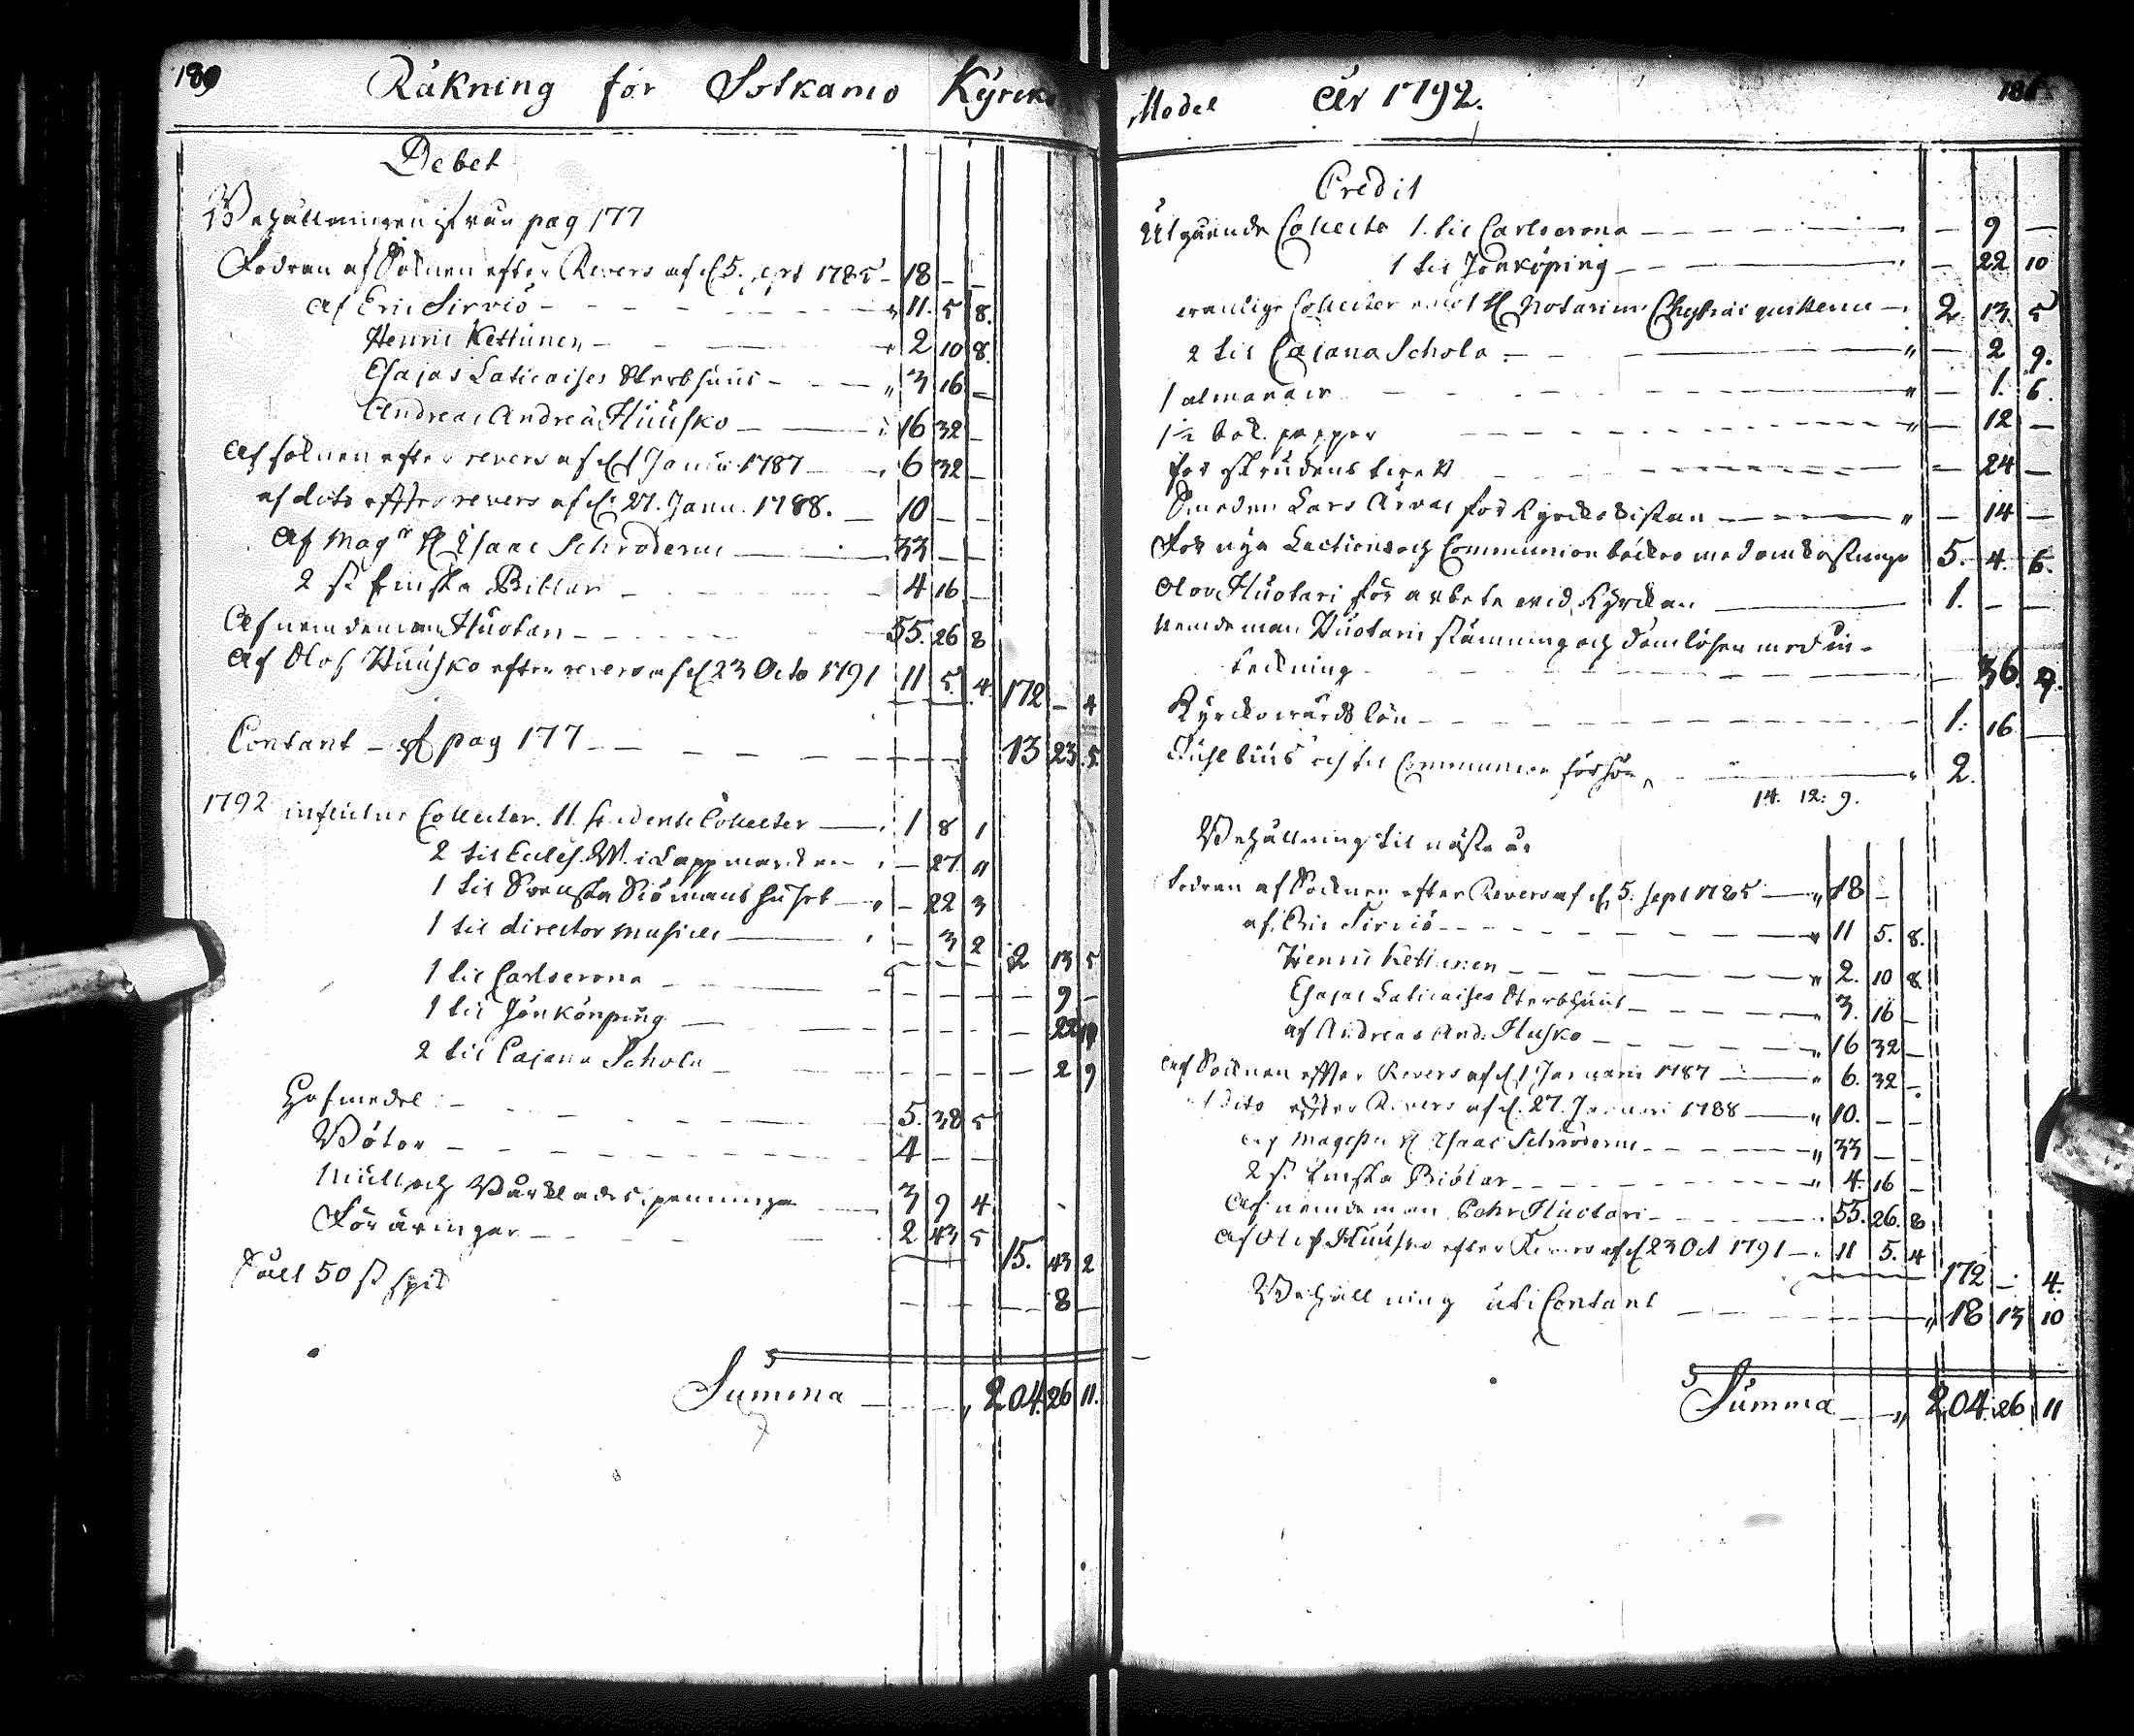 180
Räkning för Sotkamo Kyrcko
Debet
Behållningen ifrån pag 177
Fodran af Soknen efter Revers af d 5. sept 1785 - 18 - -
af Eric Sirviö - - - 11. 5 8.
Henric Kettunen - - 2 10 8.
Esajas Laticaises Sterbhuus - - - " 3 16 -
Andreas Andreæ Huusko - - 16 32 -
Af soknen efter revers af d 1 Janu. 1787 - 6 32 -
af dito efter revers af d. 27. Janu. 1788. - 10 - -
af Mag H Isaac Schroderus - 33 - -
2 st. finska Biblar - 4 16 -
Af nemdeman Huotari - - - 55. 26 8
Af Olof Huusko efter revers af d 23 Octo 1791 11 5. 4 172 - 4
Contant - af pag 177 - - - 13 23. 5
1792 influtne Collecter. 11 Collecter - 1 8 1
2 til Eccles. W. i Lappmarcken - 27 "
1 til Svenska Siömanshuset - " - 22 3
1 til director musices - - 3 2 2 13 5
1 til Carlscrona - - - 9 -
1 til Jönkönping - - - 22 10
2 til Cajana Schola - - - 2 9
Håfmedel - - - 5. 38 5
Böter - - - 4 - -
Mull och Bårklädes penningar - 3 9 4
Föräringar - - - 2 43 5 15. 43 2
Sålt 50 st spik - - - 8 -
Summa - - " 204. 26 11.
Medel År 1792.
181
Credit
Utgående Collecter 1. til Carlscrona - - - - 9 -
1 til Jönköping - - - 22 10
Collecter H Notarius quittence - 2 13 5
2 til Cajana Schola - - " - 2 9.
1 almanach - - " - 1. 6.
1 1/2 bok papper - - - " - 12 -
för skrudens - - - 24 -
Smeden Lars Ärväs för Kyrckokistan - - " - 14 -
För nya Lections och Communion böcker med omkostninge 5. 4. 6.
Olov Huotari för arbete vid Kyrckan - 1. - -
Nemdeman Huotaris stämning och domlösen med in-
teckning - - - 36. 9.
Kyrckowärds lön - - - 1. 16 -
och til Communion - - 2.
14. 12. 9.
Behållning til nästa år
Fodran af Socknen efter Revers af d, 5. sept 1785 - " 18 -
af Eric Sirviö - - - " 11 5. 8.
Henric Kettunen - - - " 2. 10 8
Esajas Laticaises Sterbhuus - - " 3. 16 -
af Andreas And. Husko - - - 16 32 -
Af Socknen efter Revers af d 1 Januarii 1787 - " 6. 32 -
af dito efter Revers af d. 27. Januari 1788 - " 10. - -
af Magister H Isaac Schroderus - - " 33 - -
2 st. finska Biblar - - - " 4. 16 -
Af nemdeman Pehr Huotari - - - 55. 26. 8
Af Olof Huusko efter Revers af d 23 Oct 1791 - 11 5. 4
172 - 4.
Behållning uti Contant - - - " 18 13 10
Summa - " 204. 26 11